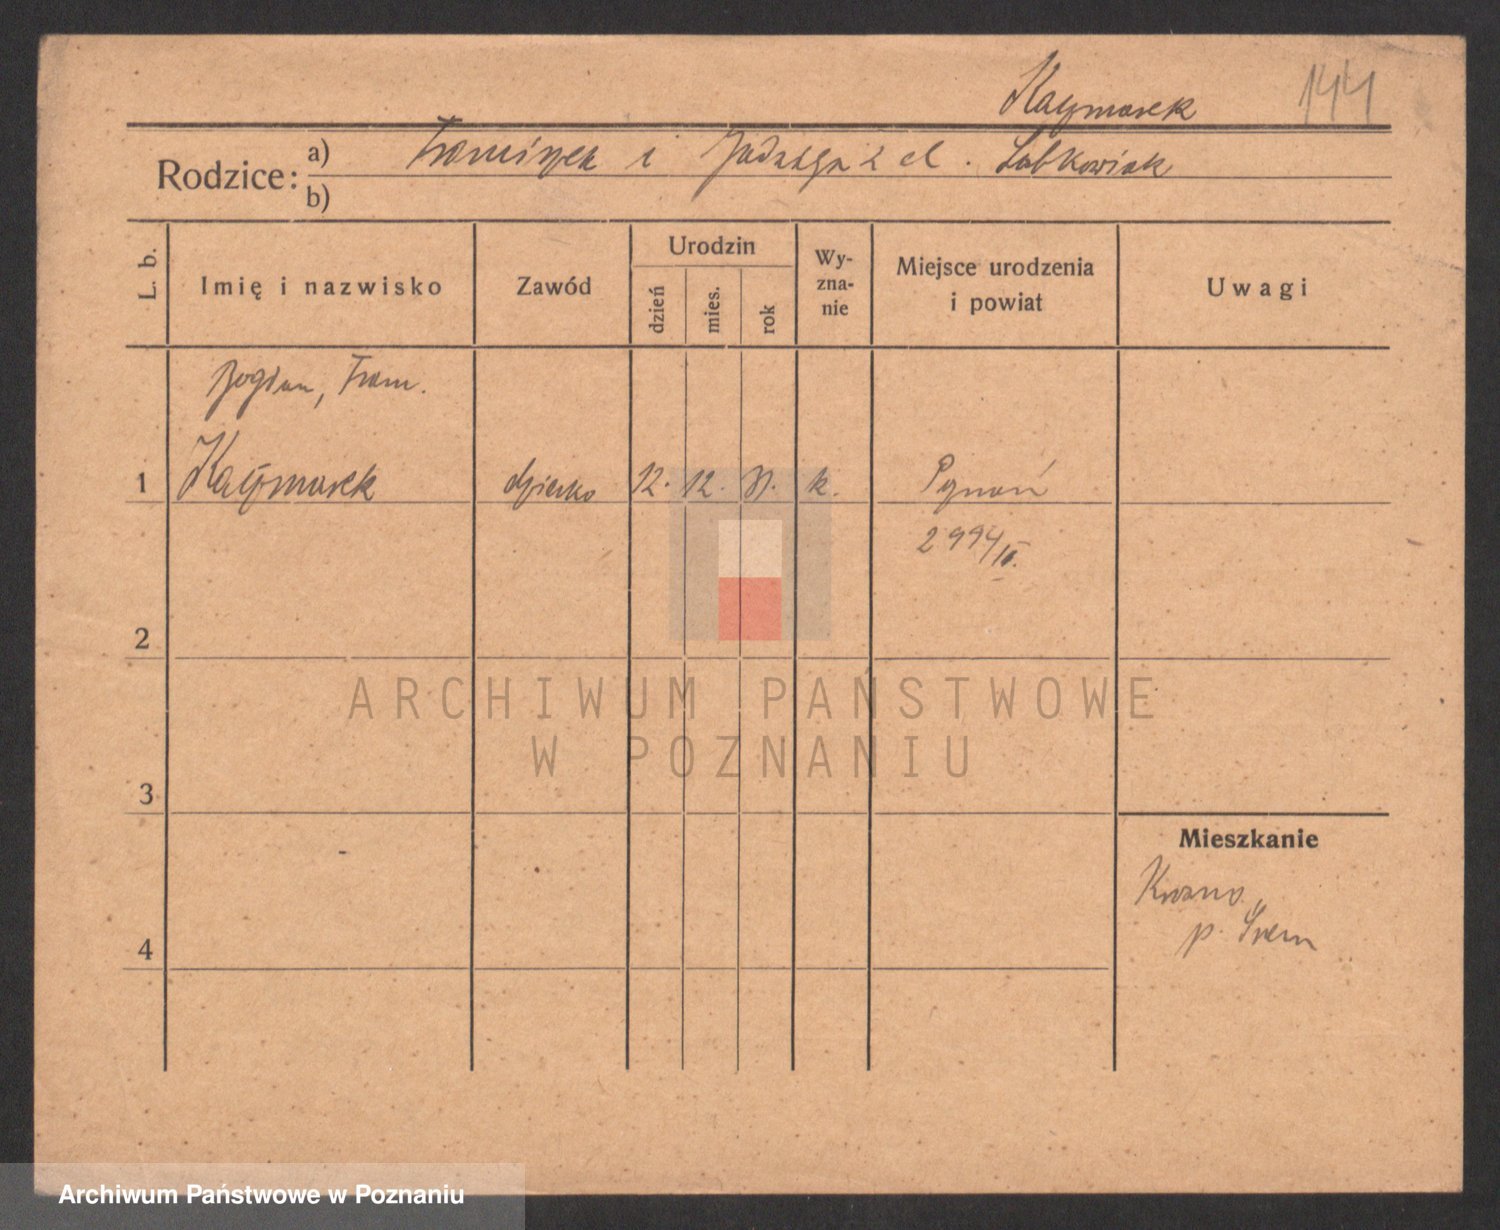 Kaczmarek 144
Rodzice: a) Franciszek i Jadwiga z d. Lubkowiak
b)
L. b. Imię i nazwisko Zawód Urodzin dzień mies. rok Wy-zna-nie Miejsce urodzenia i powiat Uwagi
Bogdan, Fran.
1 Kaczmarek dziecko 12. 12. 31. k. Poznań
2994/II.
2
ARCHIWUM PAŃSTWOWE
W POZNANIU
3
Mieszkanie
p. Śrem
4
Archiwum Państwowe w Poznaniu